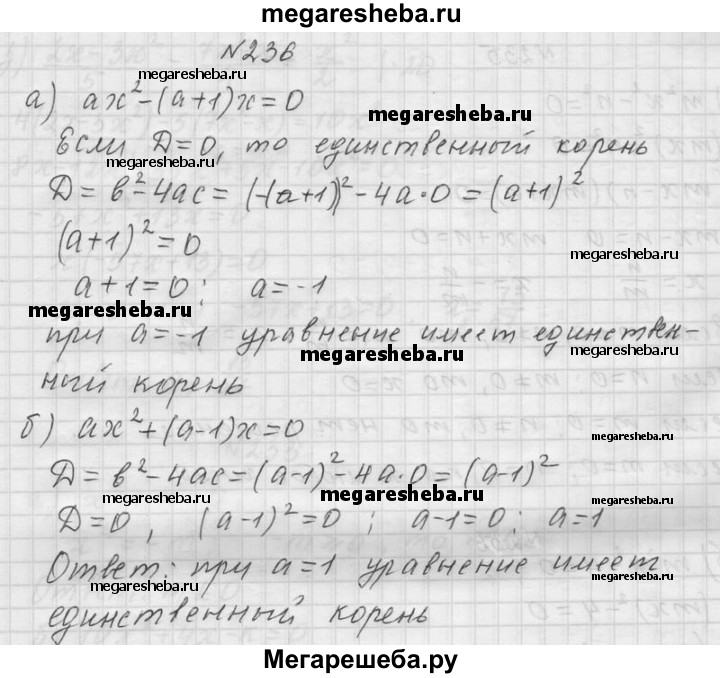 megaresheba.ru
N236
megaresheba.ru
а) ax² - (a+1)x = 0
megaresheba.ru
Если D=0, то единственный корень
megaresheba.ru
D = в² - 4ac = (-(a+1))² - 4a·0 = (a+1)²
(a+1)² = 0
megaresheba.ru
a+1=0; a=-1
megaresheba.ru
при a=-1 уравнение имеет единствен-
megaresheba.ru
megaresheba.ru
ный корень
б) ax² + (a-1)x = 0
megaresheba.ru
D = в² - 4ac = (a-1)² - 4a·0 = (a-1)²
megaresheba.ru
megaresheba.ru
megaresheba.ru
D=0, (a-1)² = 0; a-1=0; a=1
Ответ: при a=1 уравнение имеет
megaresheba.ru
megaresheba.ru
единственный корень
megaresheba.ru
Мегарешеба.ру